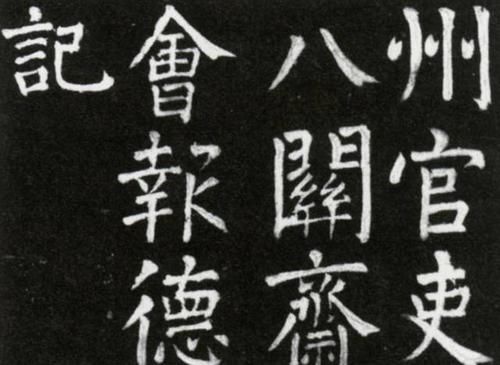 州官吏
八關齋
會報德
記